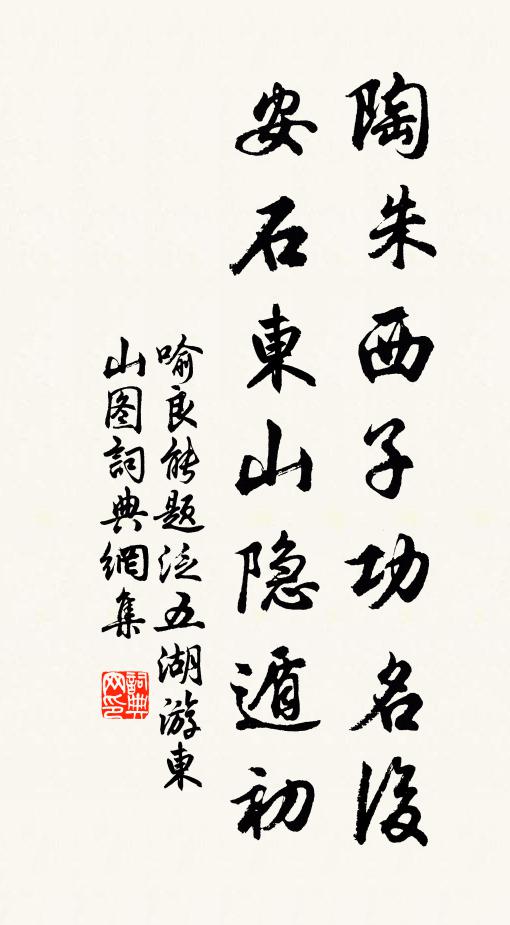 陶朱西子功名後
安石東山隐遁初
喻良能题泛五湖游東
山图詞典網集
詞典网印